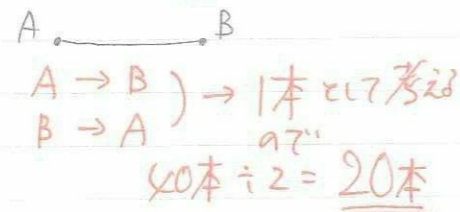 A B
A → B
B → A ) → 1本として考える
ので
40本÷2=20本